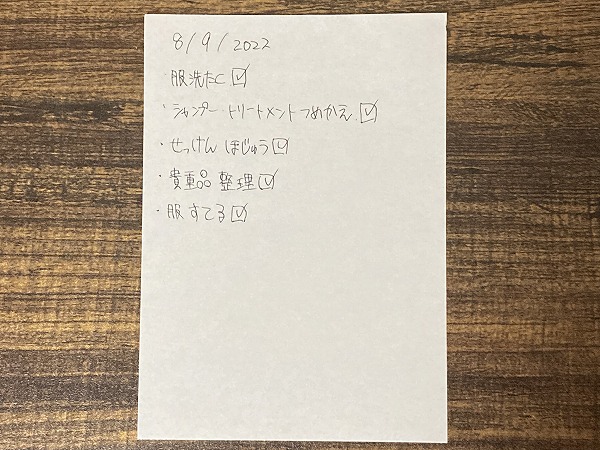 8/9/2022
・服洗たく ☑
・シャンプー・トリートメントつめかえ ☑
・せっけん ほじゅう ☑
・貴重品 整理 ☑
・服 すてる ☑